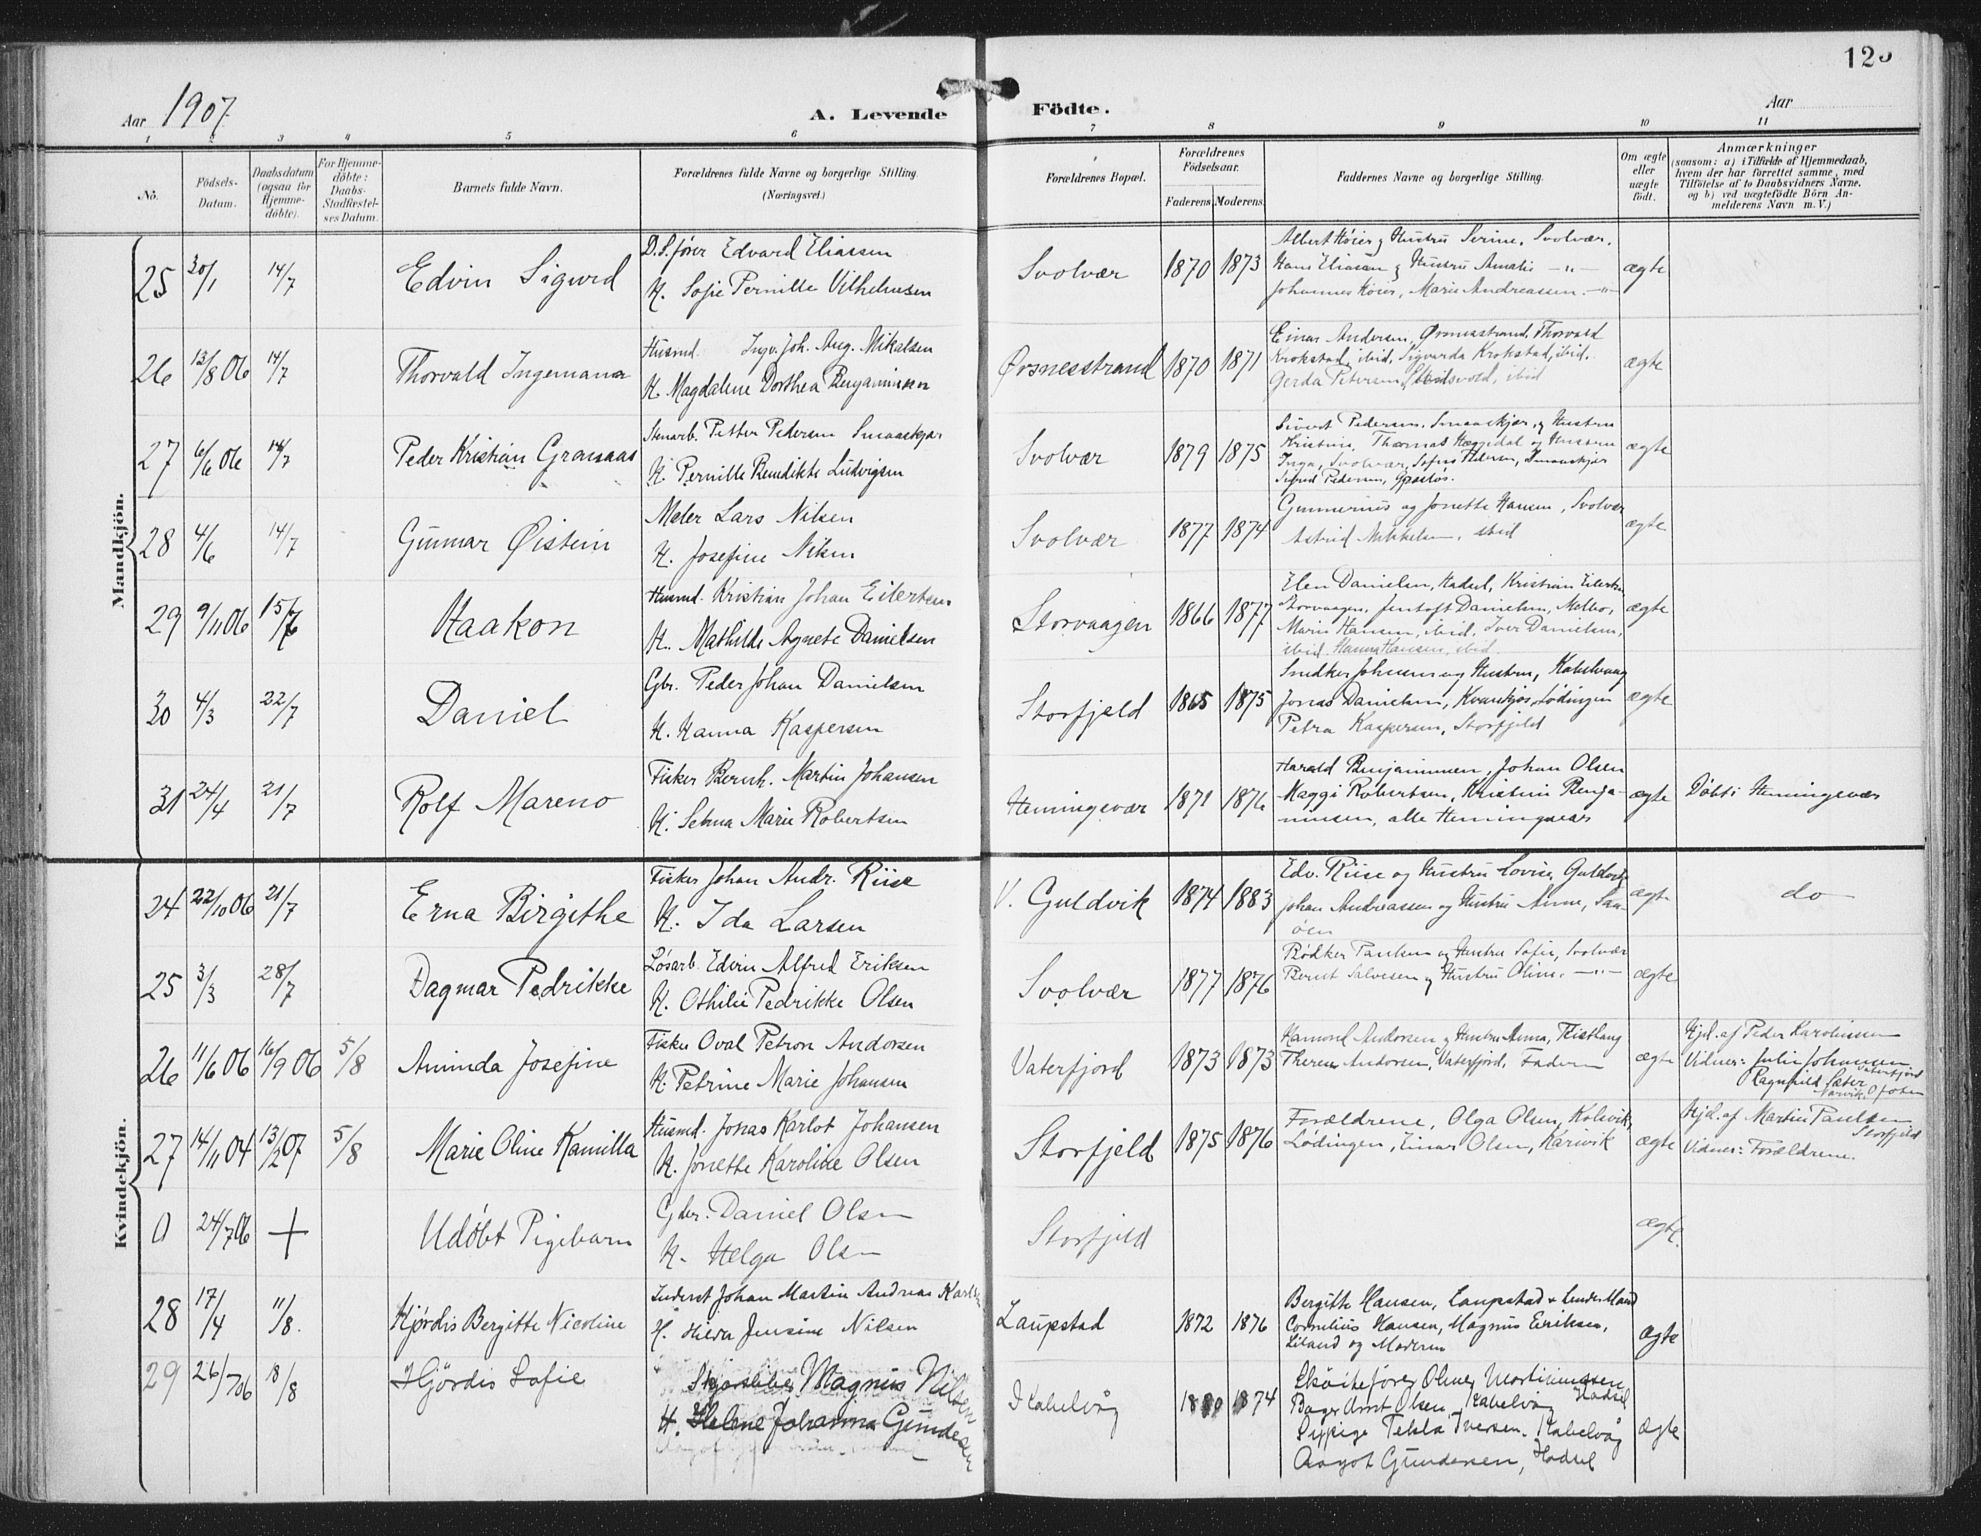 Aar 1907
A. Levende Födte.
Aar
12
1 2 3 4 5 6 7 8 9 10 11
No.
Födsels-Datum.
Daabsdatum (ogsaa for Hjemmedöbte).
For Hjemmedöbte: Daabs-Stadfæstelses Datum.
Barnets fulde Navn.
Forældrenes fulde Navne og borgerlige Stilling. (Næringsvei.)
Forældrenes Bopæl.
Forældrenes Födselsaar.
Faderens Moderens
Faddernes Navne og borgerlige Stilling.
Om ægte eller uægte födt.
Anmærkninger
(saasom: a) i Tilfælde af Hjemmedaab,
hvem der har forrettet samme, med
Tilföielse af to Daabsvidners Navne,
og b) ved uægtefödte Börn Anmelderens Navn m. V.)
Mandkjön.
25 20/1 14/7 Edvin Sigurd
D.S.fører Edvard Eliassen
H. Sofie Pernille Vilhelmsen
Svolvær 1870 1873
Albert Høier og Hustru Serine, Svolvær,
Hans Eliasen og Hustru Amalie -"-
Johannes Høier, Marie Andreassen -"-
ægte
26 13/8 06 14/7 Thorvald Ingemann
Husmd. Ingv. Joh. Aug. Mikalsen
H. Magdalene Dorthea Benjaminsen
Ørsnesstrand 1870 1871
Einar Andersen, Ørsnesstrand, Thorvald
Krokstad, ibid, Sigvarda Krokstad, ibid.
Gerda Petersen, ibid
ægte
27 6/6 06 14/7 Peder Kristian Gransaas
Stenarb. Petter Pedersen Smaaskjær
H. Pernille Benedikte Ludvigsen
Svolvær 1879 1875
Sivert Pedersen, Smaaskjær, og Hustru
Kristine, Thomas Hæggedal og Hustru
Inga, Svolvær, Sofus Pedersen, Smaaskjær
Sigrid Pedersen,
ægte
28 4/6 14/7 Gunnar Øistein
Maler Lars Nilsen
H. Josefine Nilsen
Svolvær 1877 1874
Gunnerius og Jonette Hansen, Svolvær
Astrid Mikkelsen, ibid
ægte
29 9/11 06 15/7 Haakon
Husmd. Kristian Johan Eilertsen
H. Mathilde Agnete Danielsen
Storvaagen 1866 1877
Elen Danielsen, Hadsel, Kristian Eilertsen
Storvaagen, Jentoft Danielsen, Melbo,
Marie Hansen, ibid, Iver Danielsen,
ibid. Hanna Hansen, ibid.
ægte
30 4/3 22/7 Daniel
Gbr. Peder Johan Danielsen
H. Hanna Kaspersen
Storfjeld 1865 1875
Snedker Johnsen og Hustru, Kabelvaag
Jonas Danielsen, Lødingen
Petra Kaspersen, Storfjeld
ægte
31 24/4 21/7 Rolf Mareno
Fisker Bernh. Martin Johansen
H. Selma Marie Robertsen
Henningsvær 1871 1876
Harald Benjaminsen, Johan Olsen
Maggi Robertsen, Kristine Benja-
minsen, alle Henningsvær
ægte Døbt i Henningsvær
Kvindekjön.
24 22/10 06 21/7 Erna Birgithe
Fisker Johan Andr. Riise
H. Ida Larsen
V. Guldvik 1874 1883
Edv. Riise og Hustru Lovise, Guldvik
Johan Andreassen og Hustru Anne,
ægte do
25 3/3 28/7 Dagmar Pedrikke
Løsarb. Edvin Alfred Eriksen
H. Othilie Pedrikke Olsen
Svolvær 1877 1876
Bødker Paulsen og Hustru Sofie, Svolvær
Bernt Salvesen og Hustru Oline, -"-
ægte
26 11/6 06 16/9 06 5/8 Aminda Josefine
Fisker Oval Petron Andorsen
H. Petrine Marie Johansen
Vaterfjord 1873 1873
Hamond Andorsen og Hustru Anna, Risthaug
Therese Andorsen, Vaterfjord, Faderen
ægte
Hjd. af Peder Karoliussen
Vidner: Julie Johansen Vaterfjord
Ragnhild Sæter Narvik, Ofoten
27 14/11 04 13/2 07 5/8 Marie Oline Kamilla
Husmd. Jonas Karlot Johansen
H. Jonette Karoline Olsen
Storfjeld 1875 1876
Forældrene, Olga Olsen, Kalvik,
Lødingen, Einar Olsen, Kanvik
ægte
Hjd. af Martin Paulsen Storfjeld
Vidner: Forældrene.
0 24/7 06 + Udøbt Pigebarn
Gbr. Daniel Olsen
H. Helga Olsen
Storfjeld
ægte.
28 17/4 11/8. Hjørdis Bergitte Nicoline
Inderst Johan Martin Andreas Karlsen
H. Hilda Jensine Nilsen
Laupstad 1872 1876
Bergitte Hansen, Laupstad
Cornelius Hansen, Magnus Eriksen,
Liland og Moderen
ægte
29 26/7 06 18/8 Hjördis Sofie
Magnus Nilsen
H. Helene Johanna Gundersen
Kabelvåg 1880 1874
Skøiteförer Olme Mortinussen Hadsel
Bager Arnt Olsen Kabelvåg
Pige Tekla Iversen, Kabelvåg
Aagot Gundersen, Hadsel
ægte